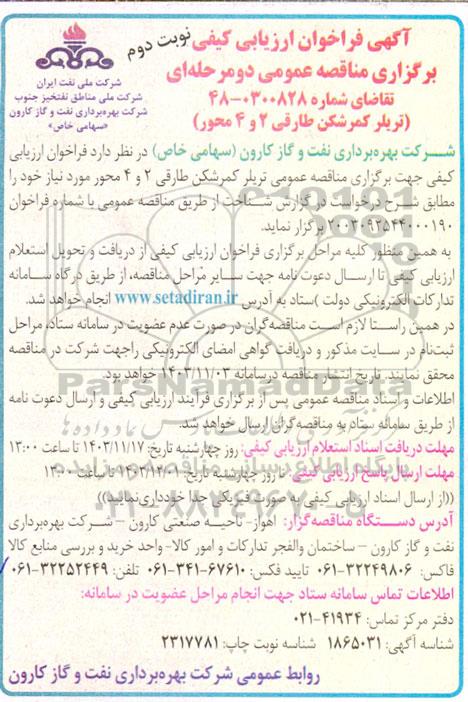 آگهی فراخوان ارزیابی کیفی
نوبت دوم
برگزاری مناقصه عمومی دومرحله‌ای
تقاضای شماره ۰۳۰۰۸۲۸-۴۸
(تریلر کمرشکن طارقی ۲ و ۴ محور)
شرکت ملی نفت ایران
شرکت ملی مناطق نفتخیز جنوب
شرکت بهره‌برداری نفت و گاز کارون
«سهامی خاص»
شرکت بهره‌برداری نفت و گاز کارون (سهامی خاص) در نظر دارد فراخوان ارزیابی
کیفی جهت برگزاری مناقصه عمومی تریلر کمرشکن طارقی ۲ و ۴ محور مورد نیاز خود را
مطابق شرح درخواست در گزارش شناخت از طریق مناقصه عمومی با شماره فراخوان
۲۰۰۳۰۹۳۵۴۴۰۰۰۱۹۰ برگزار نماید.
به همین منظور کلیه مراحل برگزاری فراخوان ارزیابی کیفی از دریافت و تحویل استعلام
ارزیابی کیفی تا ارسال دعوت نامه جهت سایر مراحل مناقصه، از طریق درگاه سامانه
تدارکات الکترونیکی دولت )ستاد به آدرس www.setadiran.ir انجام خواهد شد.
در همین راستا لازم است مناقصه‌گران در صورت عدم عضویت در سامانه ستاد، مراحل
ثبت‌نام در سایت مذکور و دریافت گواهی امضای الکترونیکی راجهت شرکت در مناقصه
محقق نمایند. تاریخ انتشار مناقصه درسامانه ۱۴۰۳/۱۱/۰۳ خواهد بود.
اطلاعات و اسناد مناقصه عمومی پس از برگزاری فرآیند ارزیابی کیفی و ارسال دعوت نامه
از طریق سامانه ستاد به مناقصه‌گران ارسال خواهد شد.
مهلت دریافت اسناد استعلام ارزیابی کیفی: روز چهارشنبه تاریخ: ۱۴۰۳/۱۱/۱۷ تا ساعت ۱۳:۰۰
مهلت ارسال پاسخ ارزیابی کیفی: تا روز چهارشنبه تاریخ: ۱۴۰۳/۱۲/۰۱ تا ساعت ۱۳:۰۰
((از ارسال اسناد ارزیابی کیفی به صورت فیزیکی جدا خودداری نمایید))
آدرس دستگاه مناقصه‌گزار: اهواز- ناحیه صنعتی کارون – شرکت بهره‌برداری
نفت و گاز کارون – ساختمان والفجر تدارکات و امور کالا- واحد خرید و بررسی منابع کالا
فاکس: ۳۲۲۴۹۸۰۶-۰۶۱ تایید فکس: ۶۷۶۱۰-۳۴۱-۰۶۱ تلفن: ۳۲۲۵۲۴۴۹-۰۶۱
اطلاعات تماس سامانه ستاد جهت انجام مراحل عضویت در سامانه:
دفتر مرکز تماس: ۴۱۹۳۴-۰۲۱
شناسه آگهی: ۱۸۶۵۰۳۱ شناسه نوبت چاپ: ۲۳۱۷۷۸۱
روابط عمومی شرکت بهره‌برداری نفت و گاز کارون
ParsNamadData